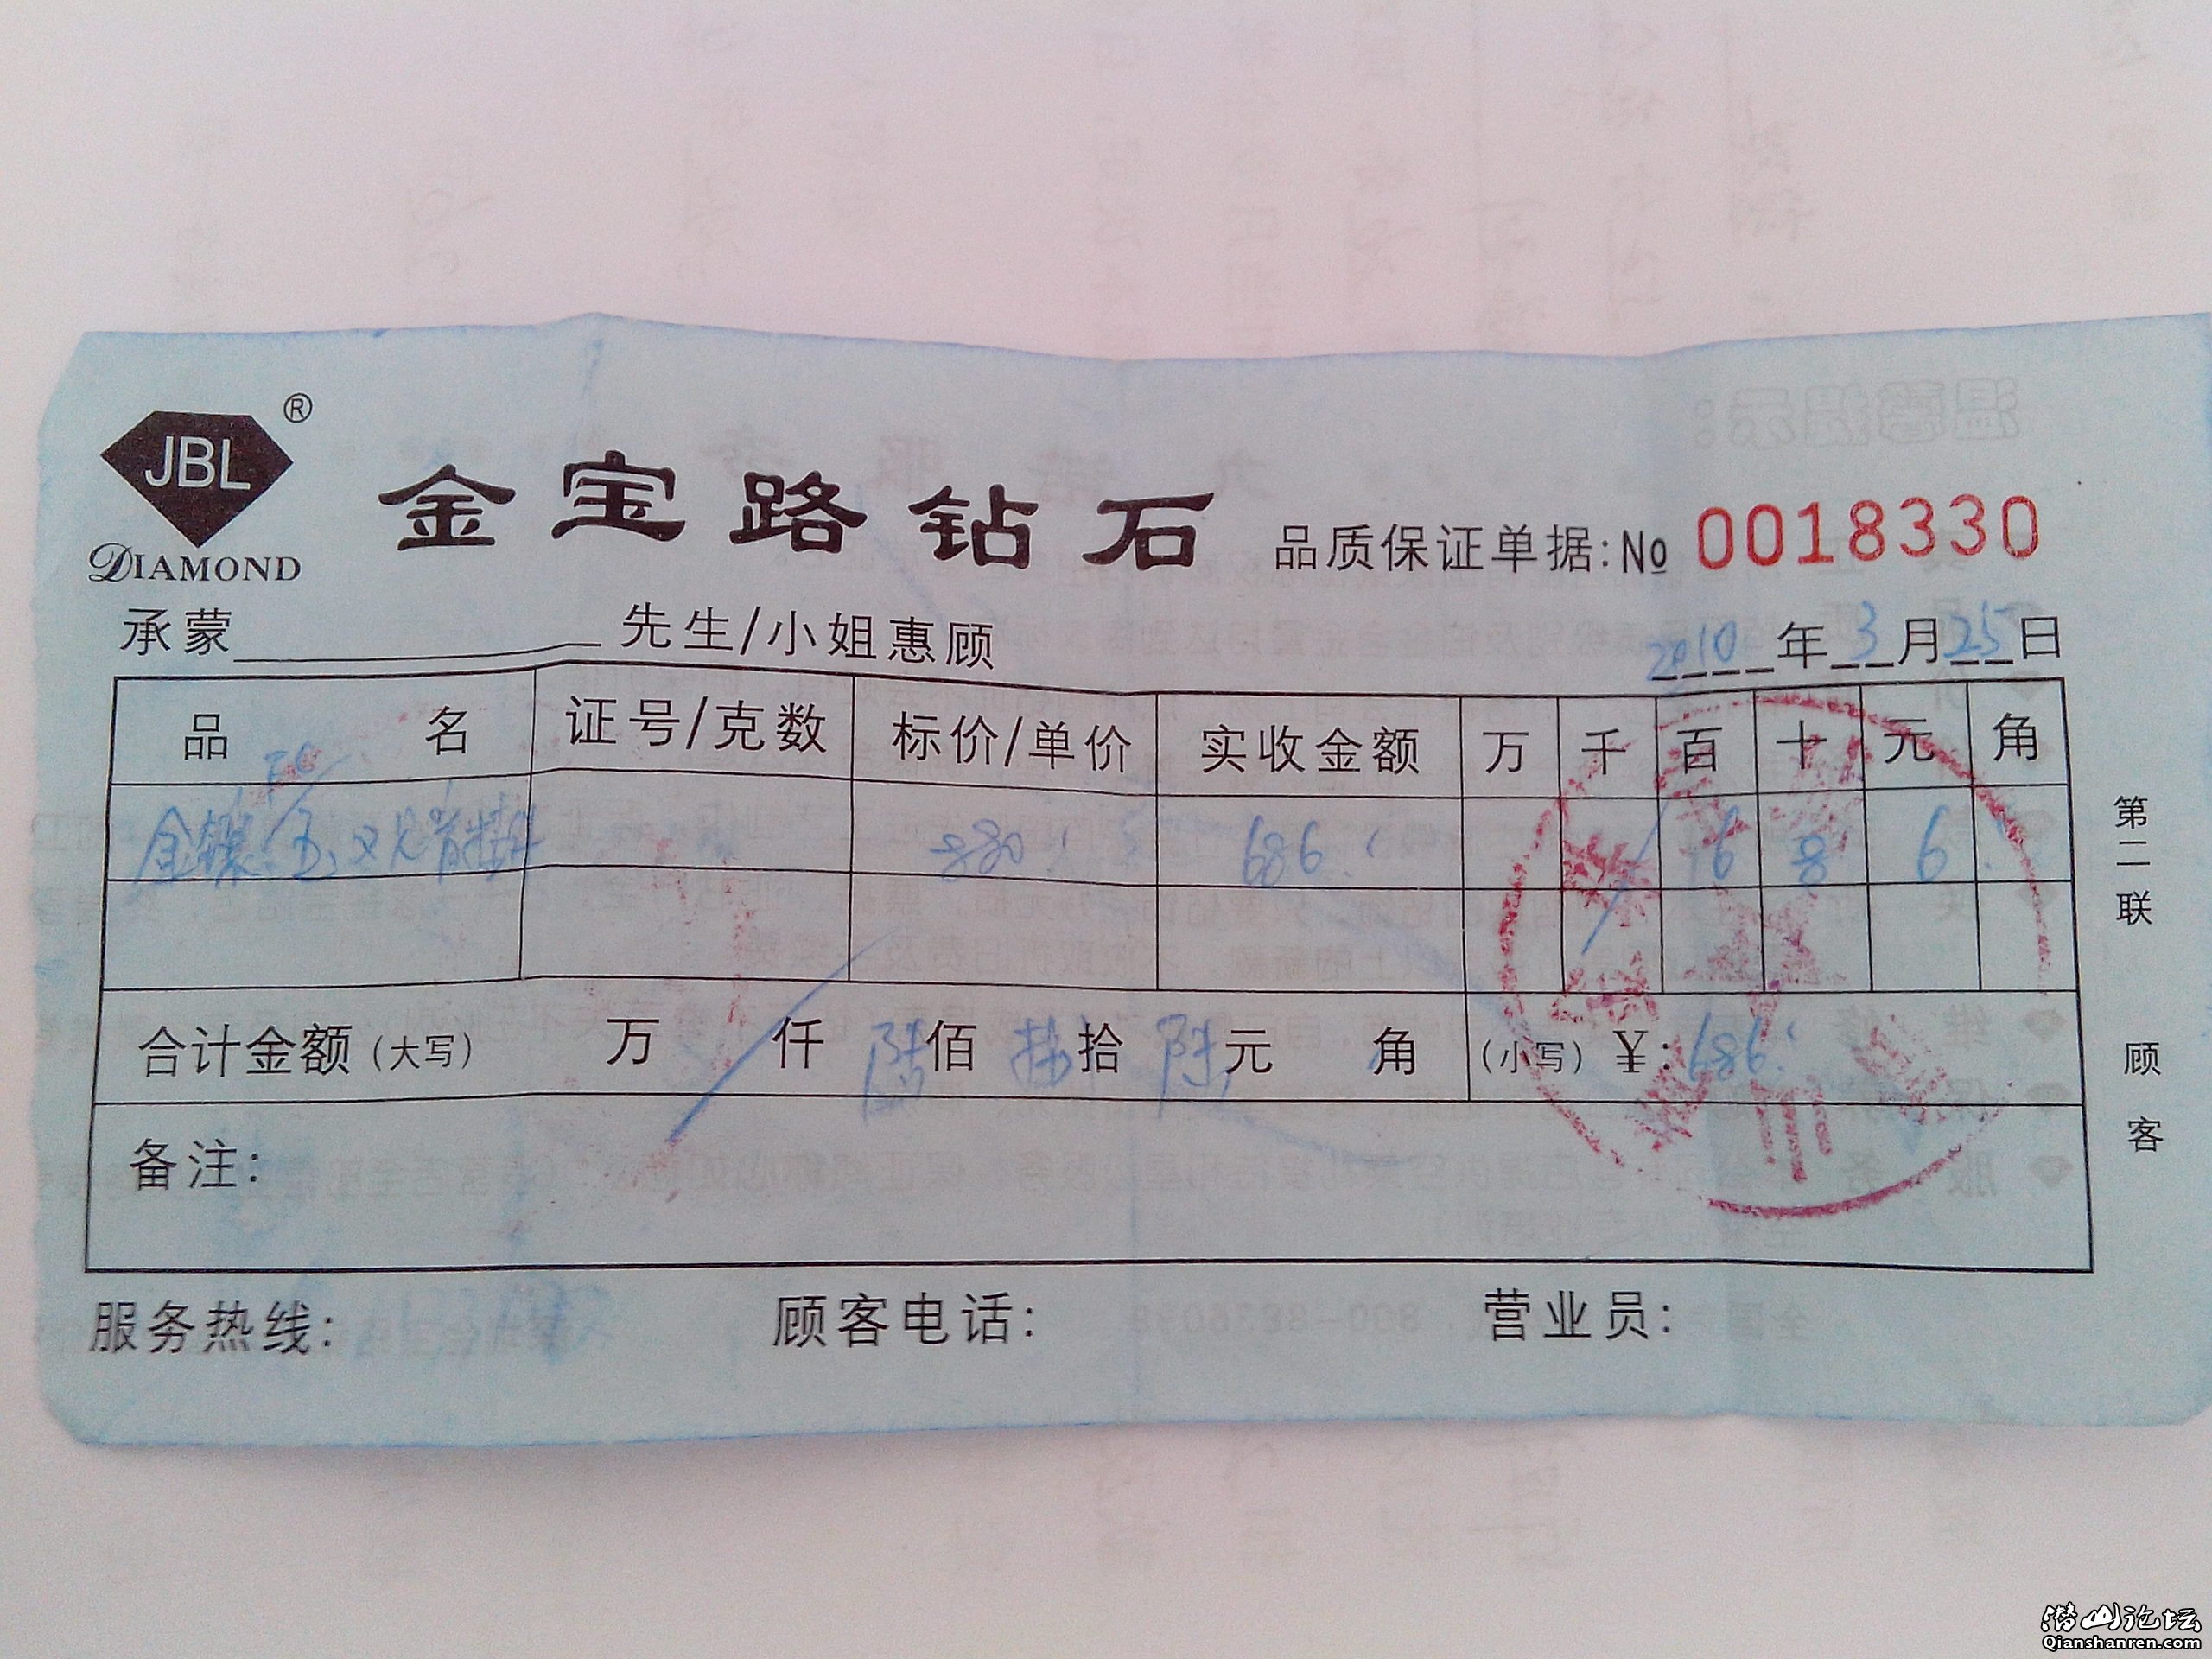 JBL ®
DIAMOND
金宝路钻石 品质保证单据:№ 0018330
承蒙 先生/小姐惠顾 2010年3月25日
品名 证号/克数 标价/单价 实收金额 万 千 百 十 元 角
金镶玉 880 686 6 8 6
合计金额(大写) 万 仟 陆佰 捌拾 陆元 角 (小写) ¥:686
备注:
服务热线: 顾客电话: 营业员:
第二联 顾客
潜山论坛
Qianshanren.com